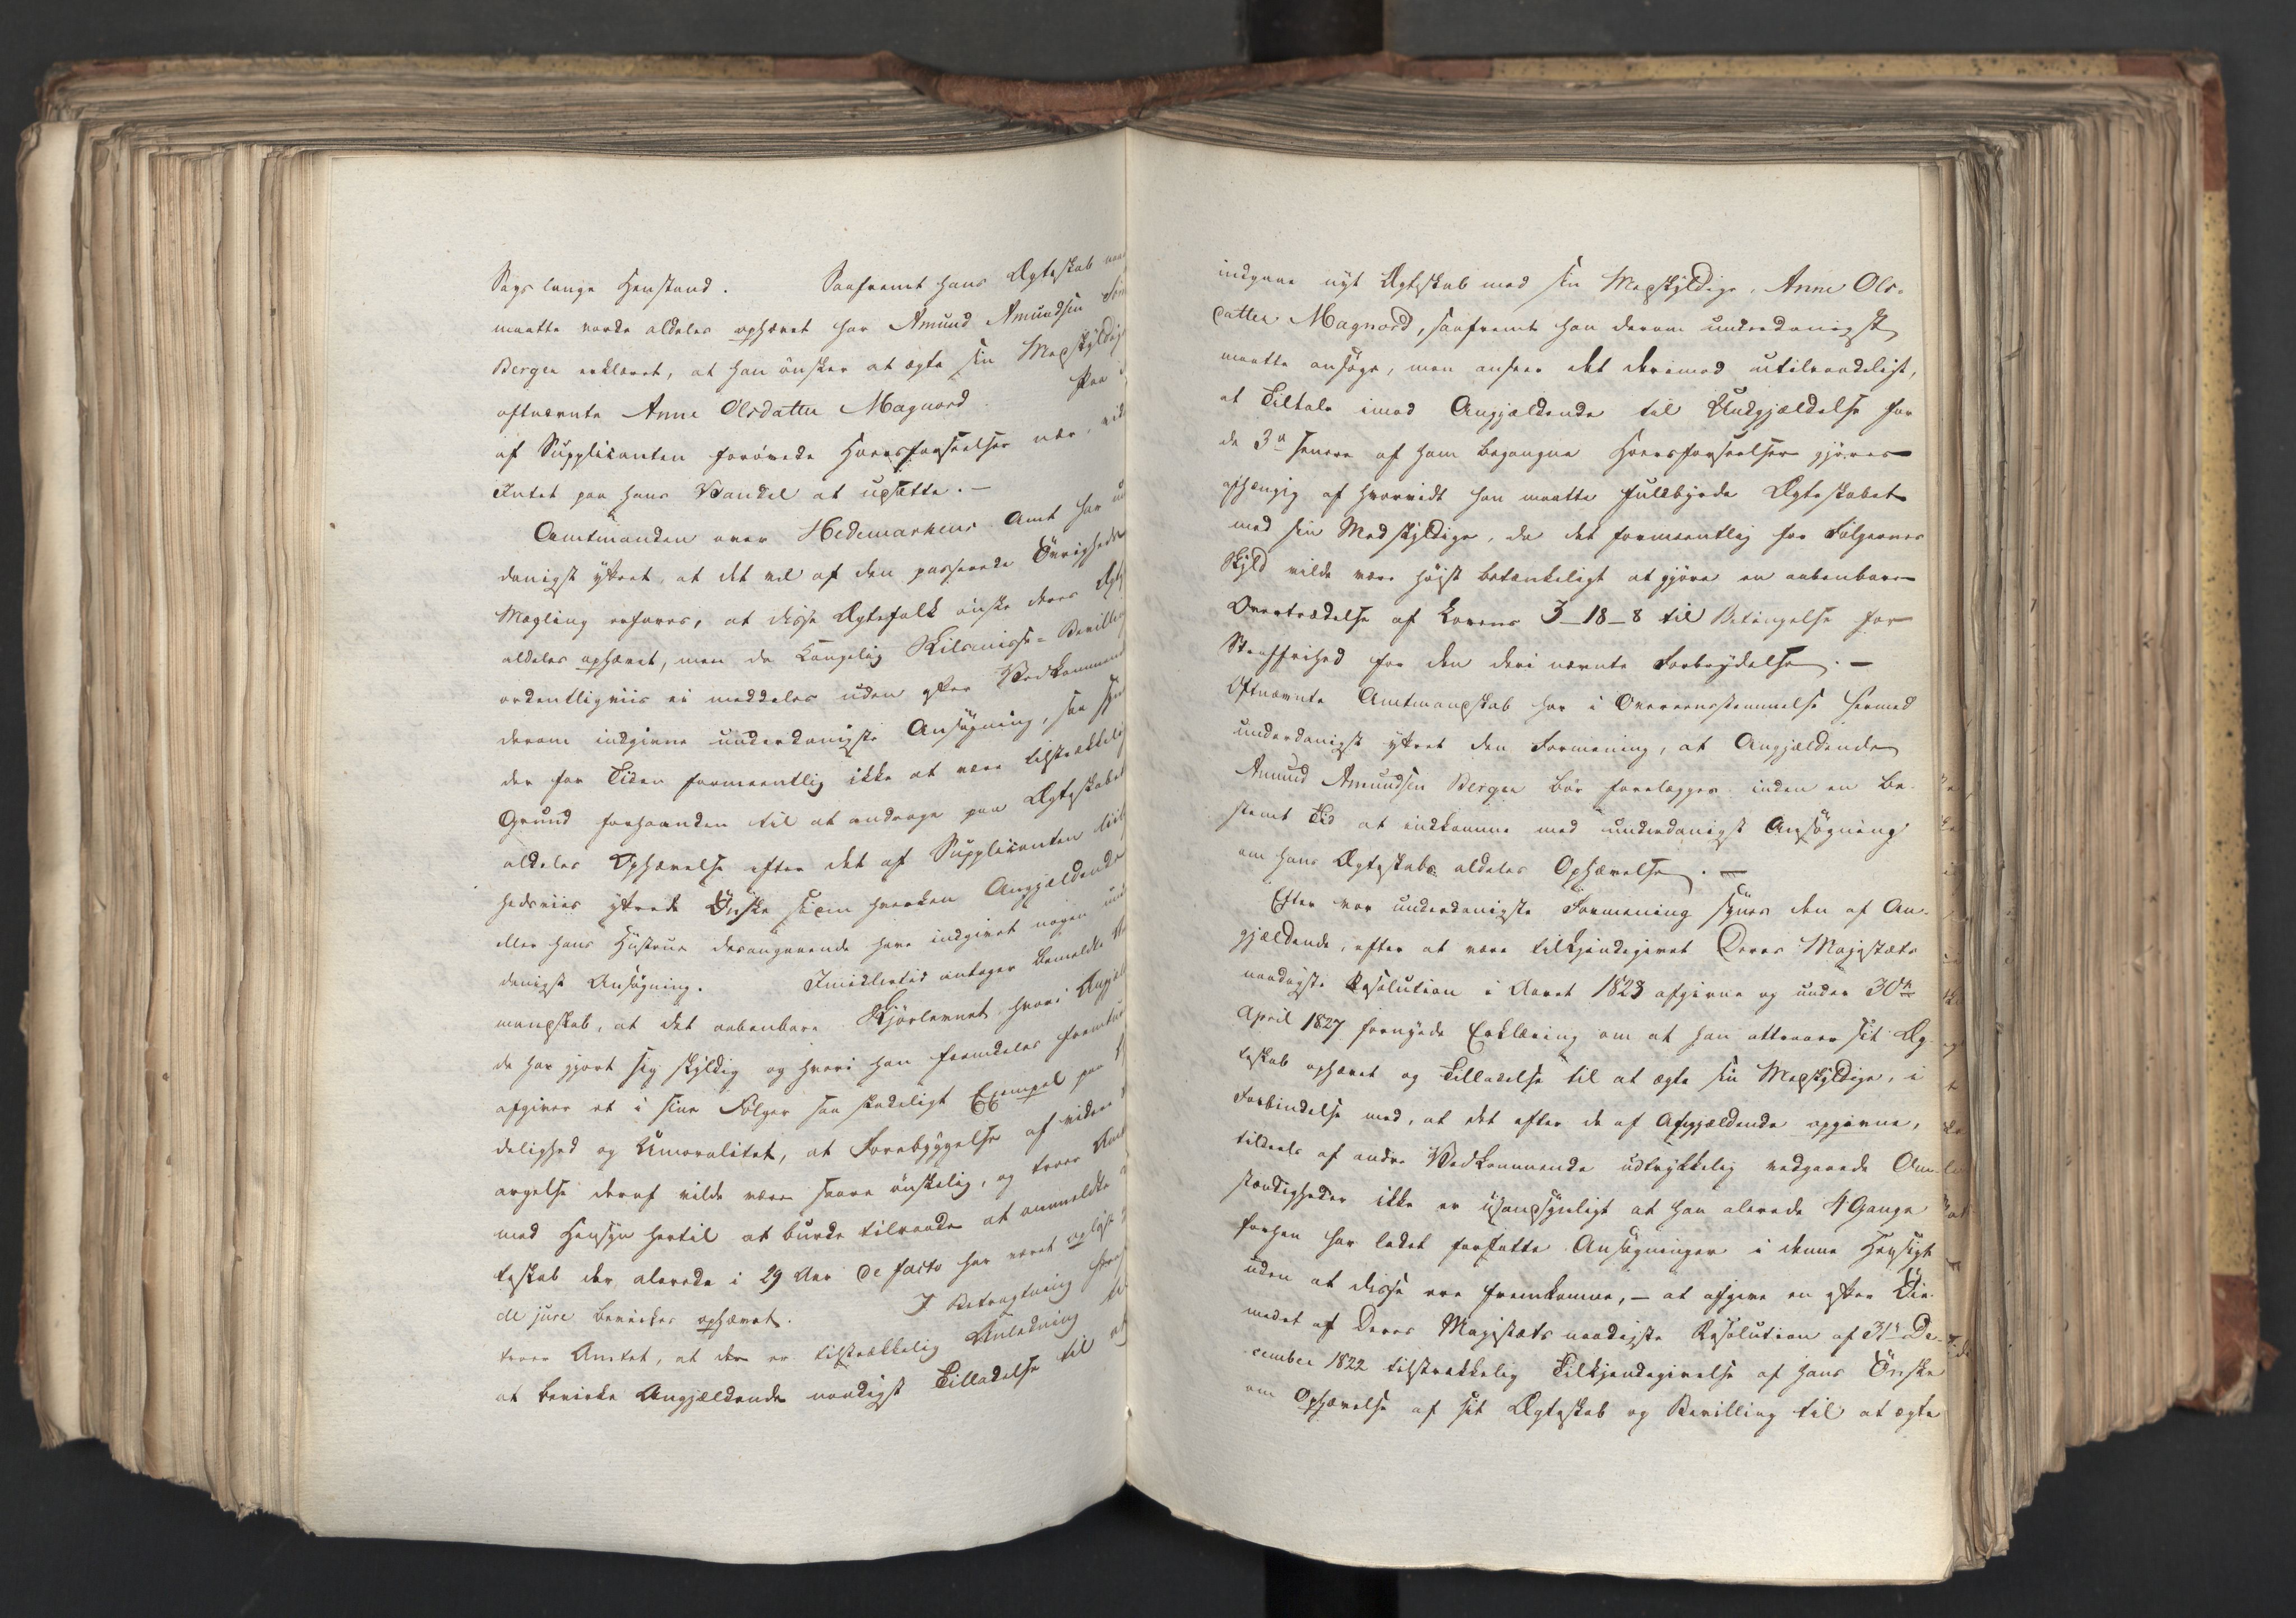 Sags lange Henstand. Saafremt hans Ægteskab
maatte vorde aldeles ophævet har Amund Amundsen
Berger erklæret, at han ønsker at ægte sin Medskyldige
oftnævnte Anne Olsdatter Magnord.
af Supplicanten forøvede Hoersforseelser nær, vides
Intet paa hans Vandel at udsætte. —
Amtmanden over Hedemarkens Amt har
danigst yttret, at det vel af den passerede Øvrigheds
Mægling erfares, at disse Ægtefolk ønske deres
aldeles ophævet, men da Kongelig Skilsmisse-Bevilling
ordentligviis ei meddeles uden efter Vedkommendes
derom indgivne underdanigste Ansøgning, saa
der for Tiden formeentlig ikke at være tilstrækkelig
Grund forhaanden til at andrage paa Ægteskabets
aldeles Ophævelse efter det af Supplicanten
hedsviis yttrede Ønske siden hverken Angjældende
eller hans Hustrue desangaaende have indgivet nogen
danigst Ansøgning. Imidlertid antager bemeldte
mandskab, at det aabenbare Skjørlevnet, hvori
de har gjort sig skyldig og hvori han fremdeles
afgiver et i sine Følger saa skadeligt Exempel paa
delighed og Umoralitet, at Forebyggelse af videre
argelse deraf vilde være saare ønskelig, og troer
med Hensyn hertil at burde tilraade at anmeldte
teskab der allerede i 29 Aar de facto har været opløst
de jure bevirkes ophævet. I Betragtning
troer Amtet, at der er tilstrækkelig Anledning
at bevirke Angjældende naadigst Tilladelse til at
indgaae nyt Ægteskab med sin Medskyldige, Anne Ols-
datter Magnord, saafremt han derom underdanigst
maatte ansøge, men anseer det derimod utilraadeligt,
at Tiltale imod Angjældende til Undgjældelse for
de 3de senere af ham begangne Hoersforseelser gjøres
afhængig af hvorvidt han maatte fuldbyrde Ægteskabet
med sin Medskyldige, da det formeentlig for Følgernes
Skyld vilde være høist betænkeligt at gjøre en aabenbare
Overtrædelse af Lovens 3–18–8 til Betingelse for
Straffrihed for den deri nævnte Forbrydelse. —
Oftnævnte Amtmandskab har i Overeensstemmelse hermed
underdanigst yttret den Formening, at Angjældende
Amund Amundsen Berger bør forelægges inden en be-
stemt Tid at indkomme med underdanigst Ansøgning
om hans Ægteskabs aldeles Ophævelse. —
Efter vor underdanigste Formening synes den af An-
gjældende, efter at være tilkjendegivet Deres Majestæts
naadigste Resolution i Aaret 1823 afgivne og under 30te
April 1827 fornyede Erklæring om at han attraaer sit Æg-
teskab ophævet og Tilladelse til at ægte sin Medskyldige, i
Forbindelse med, at det efter de af Angjældende opgivne,
tildeels af andre Vedkommende udtrykkelig vedgaaede Om-
stændigheder ikke er usandsynligt at han allerede 4 Gange
forhen har ladet forfatte Ansøgninger i denne Hensigt
uden at disse ere fremkomne, — at afgive en efter Øie-
medet af Deres Majestæts naadigste Resolution af 31te De-
cember 1822 tilstrækkelig Tilkjendegivelse af hans Ønske
om Ophævelse af sit Ægteskab og Bevilling til at ægte